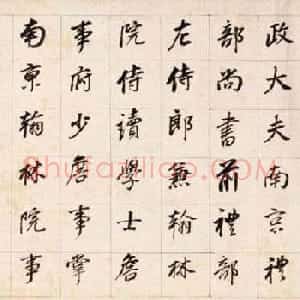 政大夫南京禮
部尚書前禮部
左侍郎兼翰林
院侍讀學士詹
事府少詹事掌
南京翰林院事
shufaziliao.com